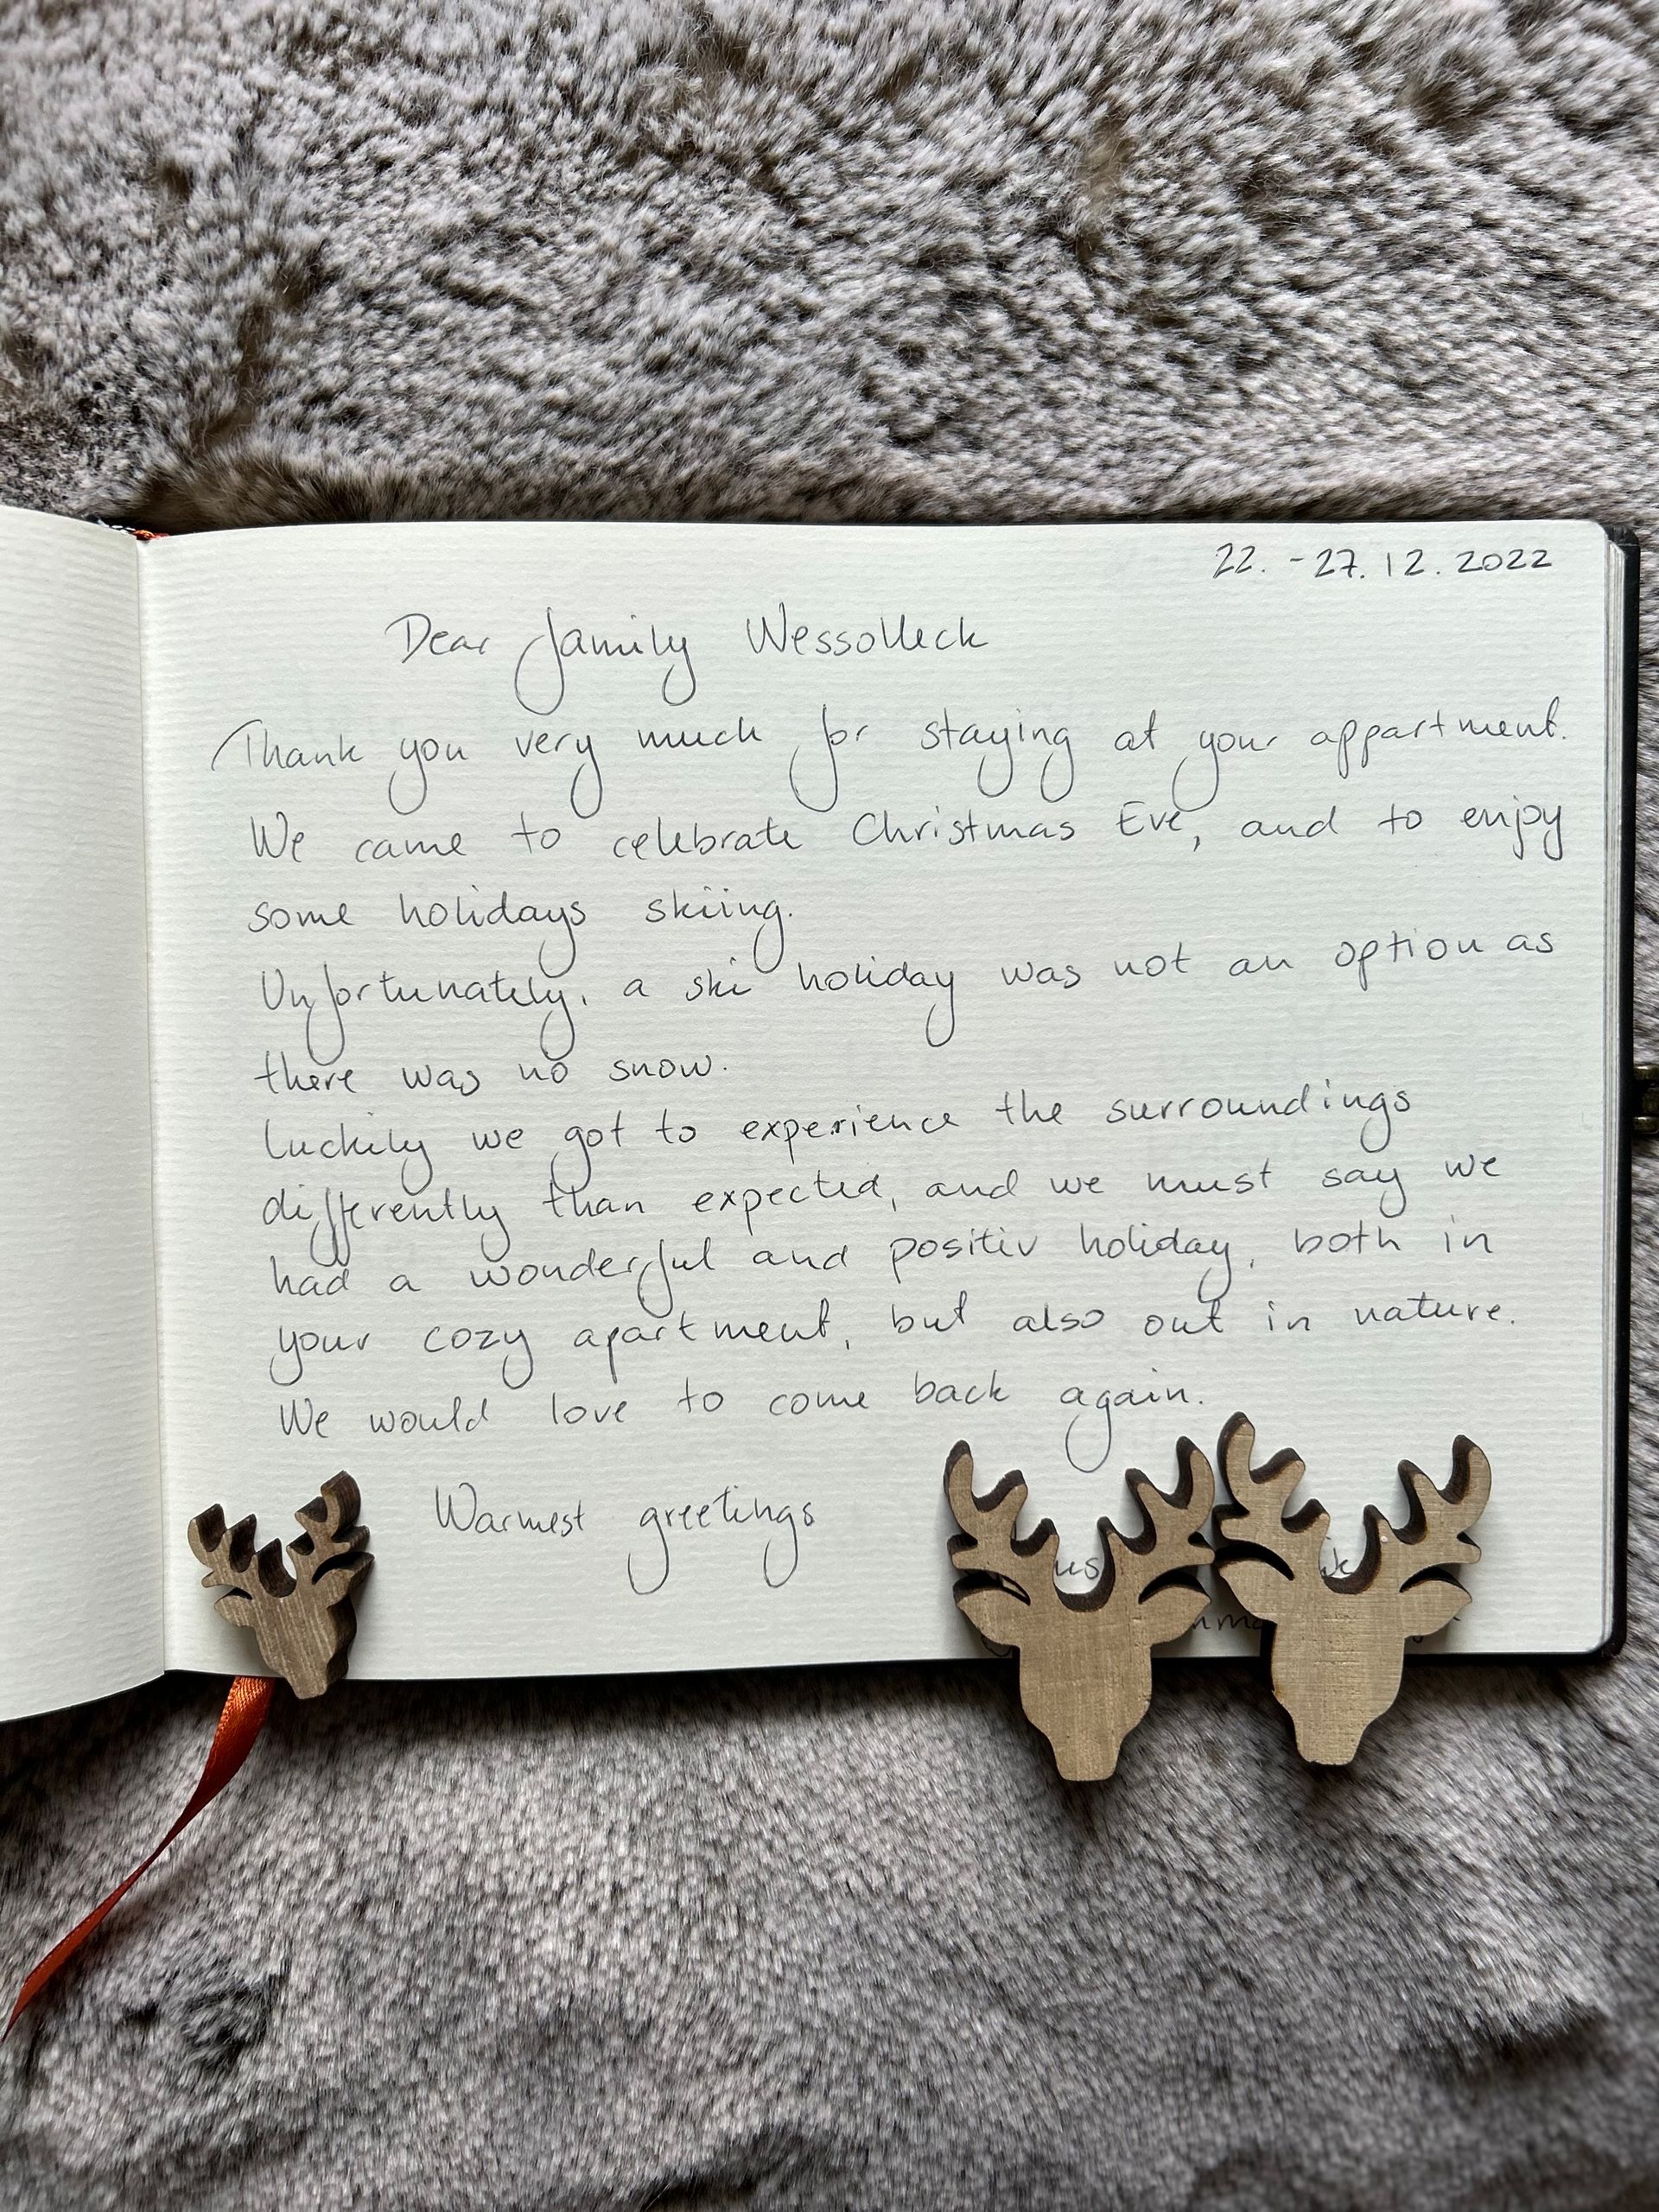 22. - 27. 12. 2022
Dear family Wessolleck
Thank you very much for staying at your appartment.
We came to celebrate Christmas Eve, and to enjoy
some holidays skiing.
Unfortunately, a ski holiday was not an option as
there was no snow.
Luckily we got to experience the surroundings
differently than expected, and we must say we
had a wonderful and positiv holiday, both in
your cozy apartment, but also out in nature.
We would love to come back again.
Warmest greetings